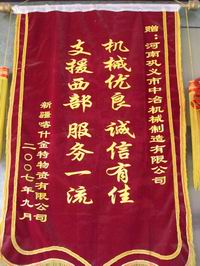 赠：河南巩义市中冶机械制造有限公司
机械优良 诚信有佳
支援西部 服务一流
新疆喀什金特物资有限公司
二〇〇七年九月